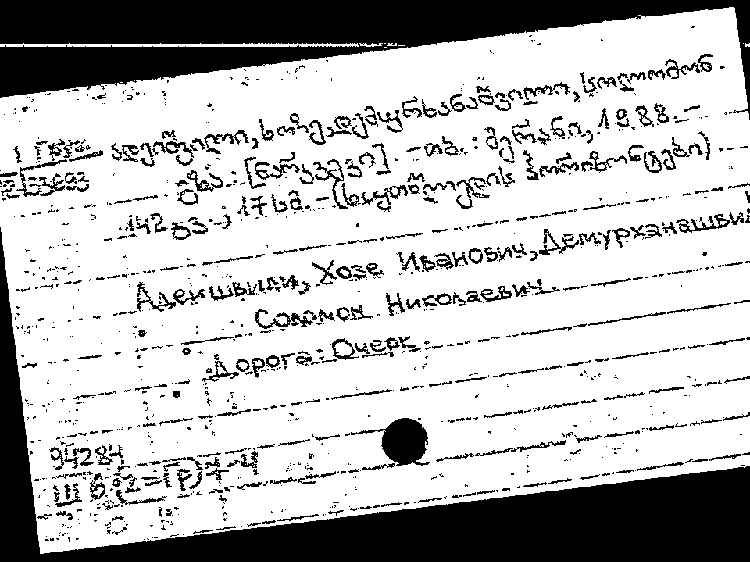 ადეიშვილი, ხოზე, დემურხანაშვილი, სოლომონ.
გზა.: [ნარკვევი]. - თბ.: მერანი, 1988. -
142 გვ.; 17 სმ. - (ხუთწლედის ჰორიზონტები).
Адеишвили, Хозе Иванович, Демурханашвили
Соломон Николаевич.
Дорога: Очерк.
94284